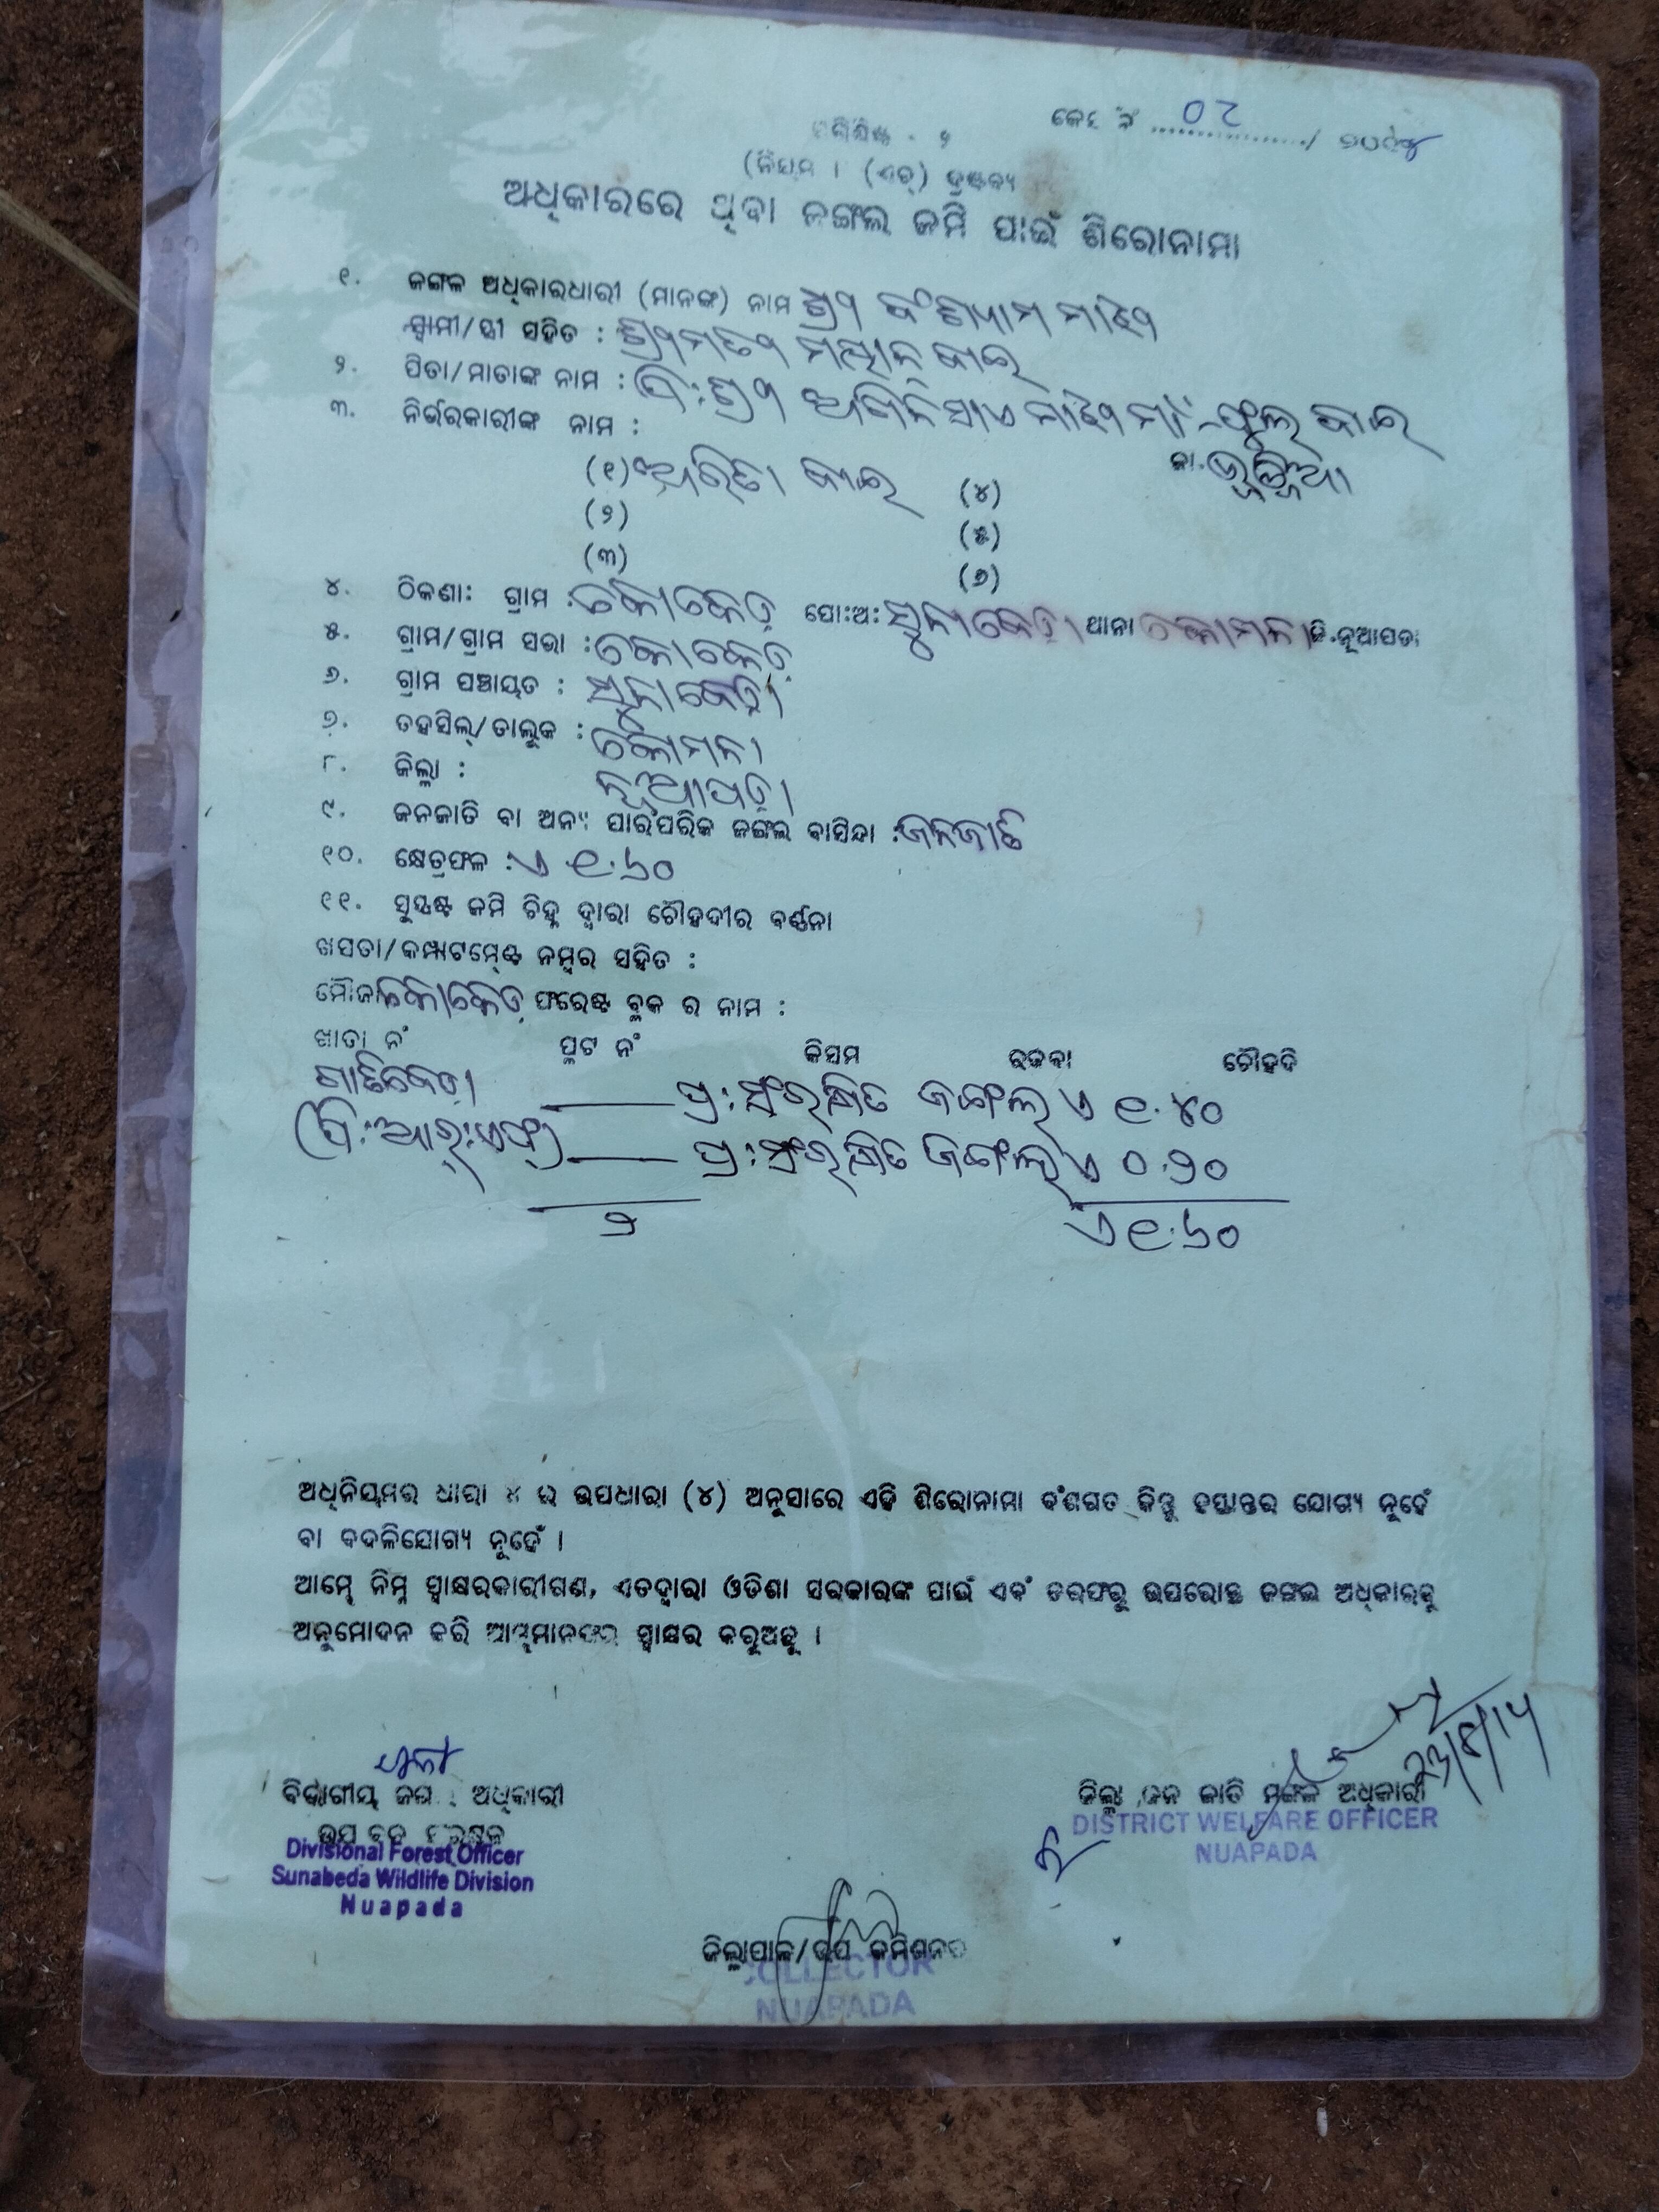 କେସ୍ ନଂ ୦୮ / ୨୦୧୪
ପରିଶିଷ୍ଟ - ୨
(ନିୟମ । (ଏଚ୍) ଦ୍ରଷ୍ଟବ୍ୟ
ଅଧିକାରରେ ଥିବା ଜଙ୍ଗଲ ଜମି ପାଇଁ ଶିରୋନାମା
୧. ଜଙ୍ଗଳ ଅଧିକାରଧାରୀ (ମାନଙ୍କ) ନାମ ଶ୍ରୀ ମାଝି
ସ୍ୱାମୀ/ସ୍ତ୍ରୀ ସହିତ : ଶ୍ରୀମତୀ ବାଇ
୨. ପିତା/ମାତାଙ୍କ ନାମ : ପି:ଶ୍ରୀ ମାଝି ମା: ଫୁଲ ବାଇ
୩. ନିର୍ଭରକାରୀଙ୍କ ନାମ : ଜା. ଭୂଞ୍ଜିଆ
(୧) ବାଇ (୪)
(୨) (୫)
(୩) (୬)
୪. ଠିକଣା: ଗ୍ରାମ : ପୋ:ଅ: ସୁନାବେଡ଼ା ଥାନା କୋମନା ଜି.ନୂଆପଡା
୫. ଗ୍ରାମ/ଗ୍ରାମ ସଭା :
୬. ଗ୍ରାମ ପଞ୍ଚାୟତ : ସୁନାବେଡ଼ା
୭. ତହସିଲ୍/ତାଲୁକ : କୋମନା
୮. ଜିଲ୍ଲା : ନୂଆପଡ଼ା
୯. ଜନଜାତି ବା ଅନ୍ୟ ପାରଂପରିକ ଜଙ୍ଗଲ ବାସିନ୍ଦା : ଜନଜାତି
୧୦. କ୍ଷେତ୍ରଫଳ : ଏ ୧.୬୦
୧୧. ସୁସ୍ପଷ୍ଟ ଜମି ଚିହ୍ନ ଦ୍ୱାରା ଚୌହଦୀର ବର୍ଣ୍ଣନା
ଖସଡା/କମ୍ପାଟମେଣ୍ଟ ନମ୍ବର ସହିତ :
ମୌଜା ଫରେଷ୍ଟ ବ୍ଲକ ର ନାମ :
ଖାତା ନଂ ପ୍ଲଟ ନଂ କିସମ ରକବା ଚୌହଦି
ପ୍ର:ସଂରକ୍ଷିତ ଜଙ୍ଗଲ ଏ ୧.୪୦
(ପି:ଆର୍:ଏଫ୍) ପ୍ର:ସଂରକ୍ଷିତ ଜଙ୍ଗଲ ଏ ୦.୨୦
୨ ଏ ୧.୬୦
ଅଧିନିୟମର ଧାରା ୪ ର ଉପଧାରା (୪) ଅନୁସାରେ ଏହି ଶିରୋନାମା ବଂଶଗତ କିନ୍ତୁ ହସ୍ତାନ୍ତର ଯୋଗ୍ୟ ନୁହେଁ
ବା ବଦଳିଯୋଗ୍ୟ ନୁହେଁ ।
ଆମ୍ଭେ ନିମ୍ନ ସ୍ୱାକ୍ଷରକାରୀଗଣ, ଏତଦ୍ୱାରା ଓଡିଶା ସରକାରଙ୍କ ପାଇଁ ଏବଂ ତରଫରୁ ଉପରୋକ୍ତ ଜଙ୍ଗଲ ଅଧିକାରକୁ
ଅନୁମୋଦନ କରି ଆମ୍ଭମାନଙ୍କର ସ୍ୱାକ୍ଷର କରୁଅଛୁ ।
ବିଭାଗୀୟ ଅଧିକାରୀ
ଉପ ବନ ସଂରକ୍ଷକ
Divisional Forest Officer
Sunabeda Wildlife Division
Nuapada
23/8/14
ଜିଲ୍ଲା ଜନ ଜାତି ମଙ୍ଗଳ ଅଧିକାରୀ
DISTRICT WELFARE OFFICER
NUAPADA
ଜିଲ୍ଲାପାଳ/ଉପ କମିଶନର
COLLECTOR
NUAPADA